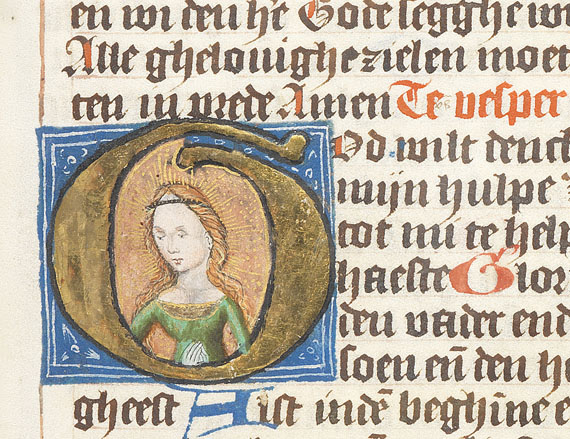 en wi den h̄e Gode segghe w
Alle ghelouighe zielen moet
ten in vrede Amen Te vesper
God wilt denck
mijn hulpe
tot mi te help
haeste Glor
den vader end
soen en̄ den he
gheest Alst indē beghīne e